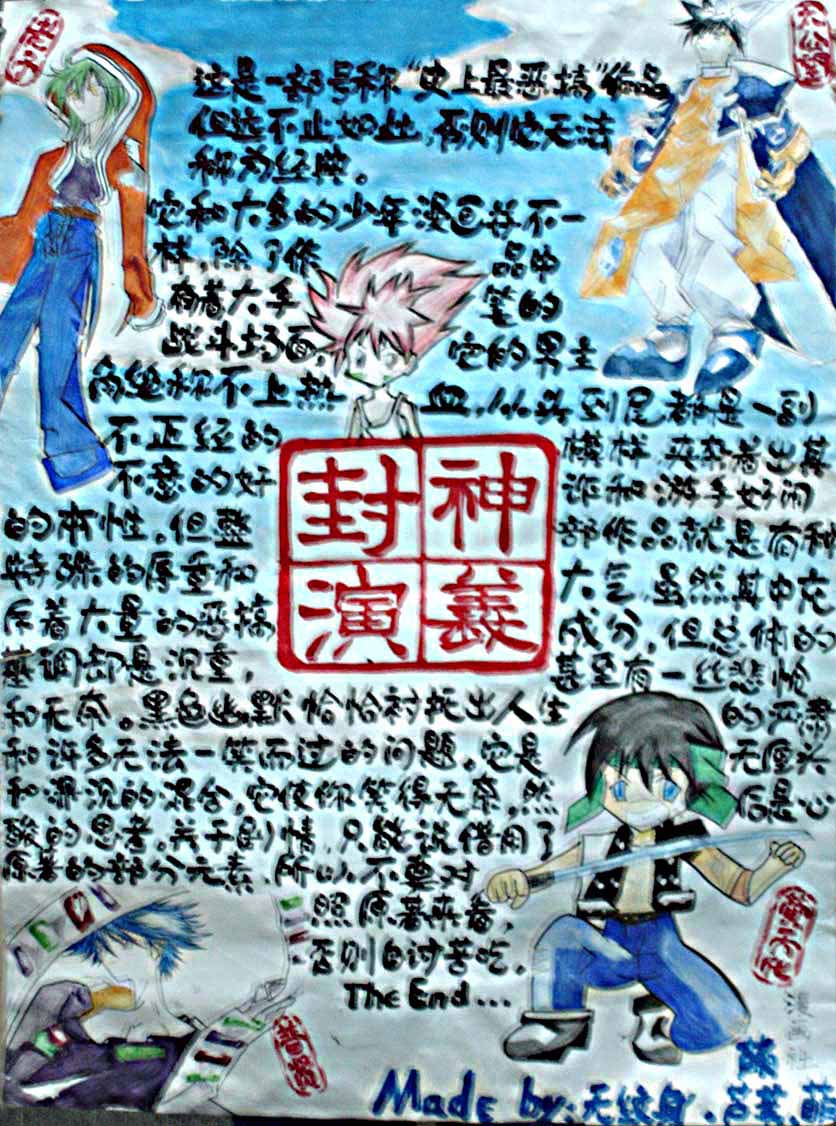 这是一部号称“史上最恶搞”作品
但远不止如此,否则它无法
称为经典。
它和大多的少年漫画并不一
样,除了作品中
有着大手笔的
战斗场面,它的男主
角绝称不上热血,从头到尾都是一副
不正经的模样,夹杂着出其
不意的奸诈和游手好闲
的本性。但整部作品就是有种
特殊的厚重和大气,虽然其中充
斥着大量的恶搞成分,但总体的
基调却是沉重,甚至有一丝悲怆
和无奈。黑色幽默恰恰衬托出人生的严肃
和许多无法一笑而过的问题。它是无厘头
和深沉的混合,它使你笑得无奈,然后是心
酸的思考。关于剧情,只能说借用了
原著的部分元素,所以不要对
照原著来看,
否则自讨苦吃。
The End...
封神
演義
Made by:无纹身、芦苇、萌